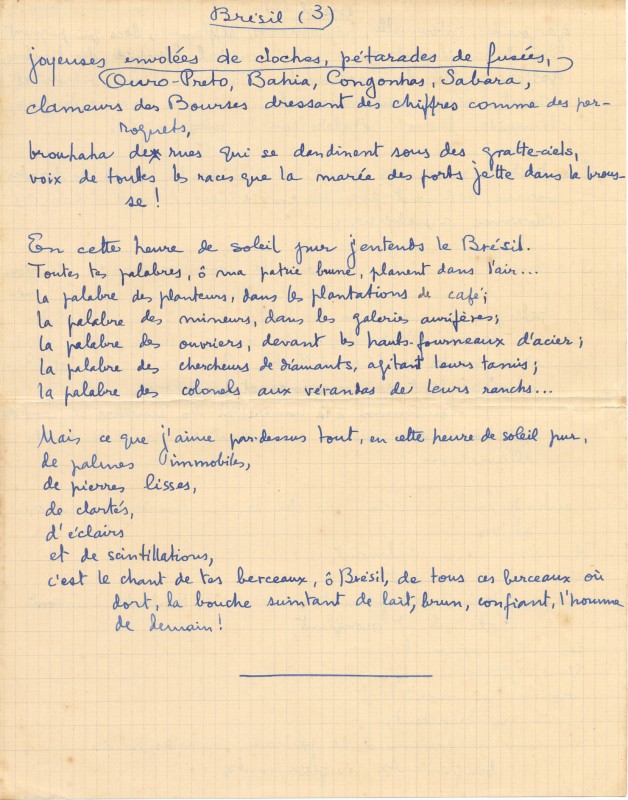 Brésil (3)
joyeuses envolées de cloches, pétarades de fusées,
Ouro-Preto, Bahia, Congonhas, Sabara,
clameurs des Bourses dressant des chiffres comme des per-
roquets,
brouhaha des rues qui se dandinent sous des gratte-ciels,
voix de toutes les races que la marée des ports jette dans la brous-
se !
En cette heure de soleil pur j'entends le Brésil.
Toutes tes palabres, ô ma patrie brune, planent dans l'air...
la palabre des planteurs, dans les plantations de café ;
la palabre des mineurs, dans les galeries aurifères ;
la palabre des ouvriers, devant les hauts-fourneaux d'acier ;
la palabre des chercheurs de diamants, agitant leurs tamis ;
la palabre des colonels aux vérandas de leurs ranchs...
Mais ce que j'aime par-dessus tout, en cette heure de soleil pur,
de palmes immobiles,
de pierres lisses,
de clartés,
d'éclairs
et de scintillations,
c'est le chant de tes berceaux, ô Brésil, de tous ces berceaux où
dort, la bouche suintant de lait, brun, confiant, l'homme
de demain !